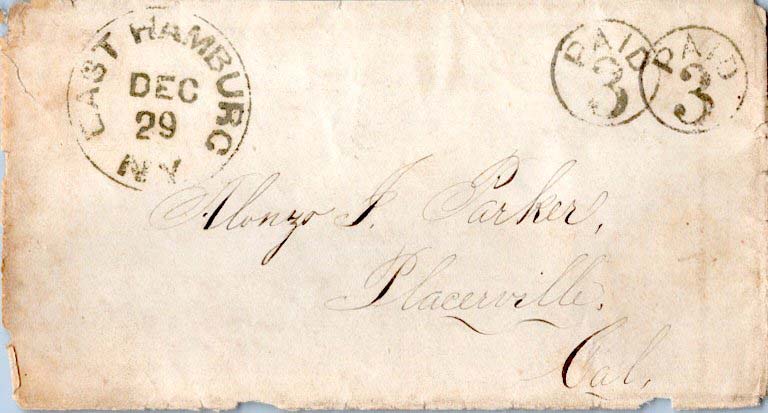 EAST HAMBURG
DEC
29
N.Y.
PAID
3
PAID
3
Alonzo J. Parker,
Placerville.
Cal.